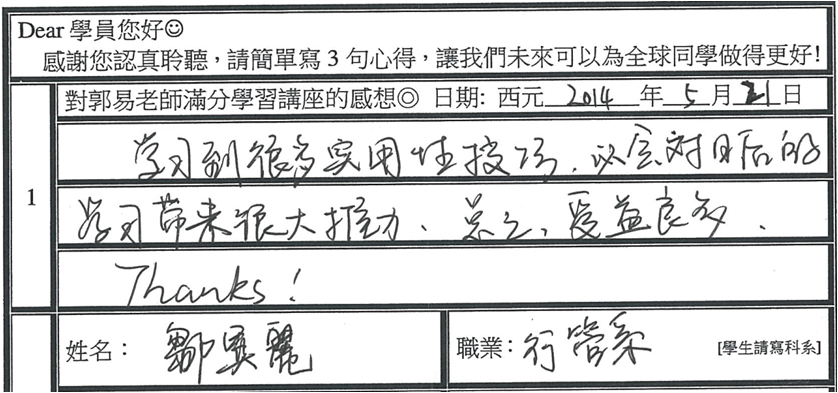 Dear 學員您好☺
感謝您認真聆聽，請簡單寫 3 句心得，讓我們未來可以為全球同學做得更好!
對郭易老師滿分學習講座的感想◎ 日期: 西元 2014 年 5 月 21 日
1
学习到很多实用性技巧，以会对日后的
学习带来很大推力、总之，受益良多．
Thanks!
姓名： 鄒 麗
職業：行管系 [學生請寫科系]